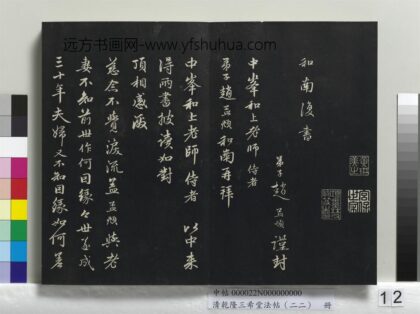 远方书画网-www.yfshuhua.com
和南復書
弟子趙孟頫謹封
中峯和上老師 侍者
弟子趙孟頫和南再拜
中峯和上老師 侍者 以中来
得兩書披讀如對
頂相感激
慈念不覺淚流蓋孟頫與老
妻不知前世作何因緣今世遂成
三十年夫婦又不知因緣如何差
中帖 000022N000000000
清乾隆三希堂法帖(二二) 冊
12